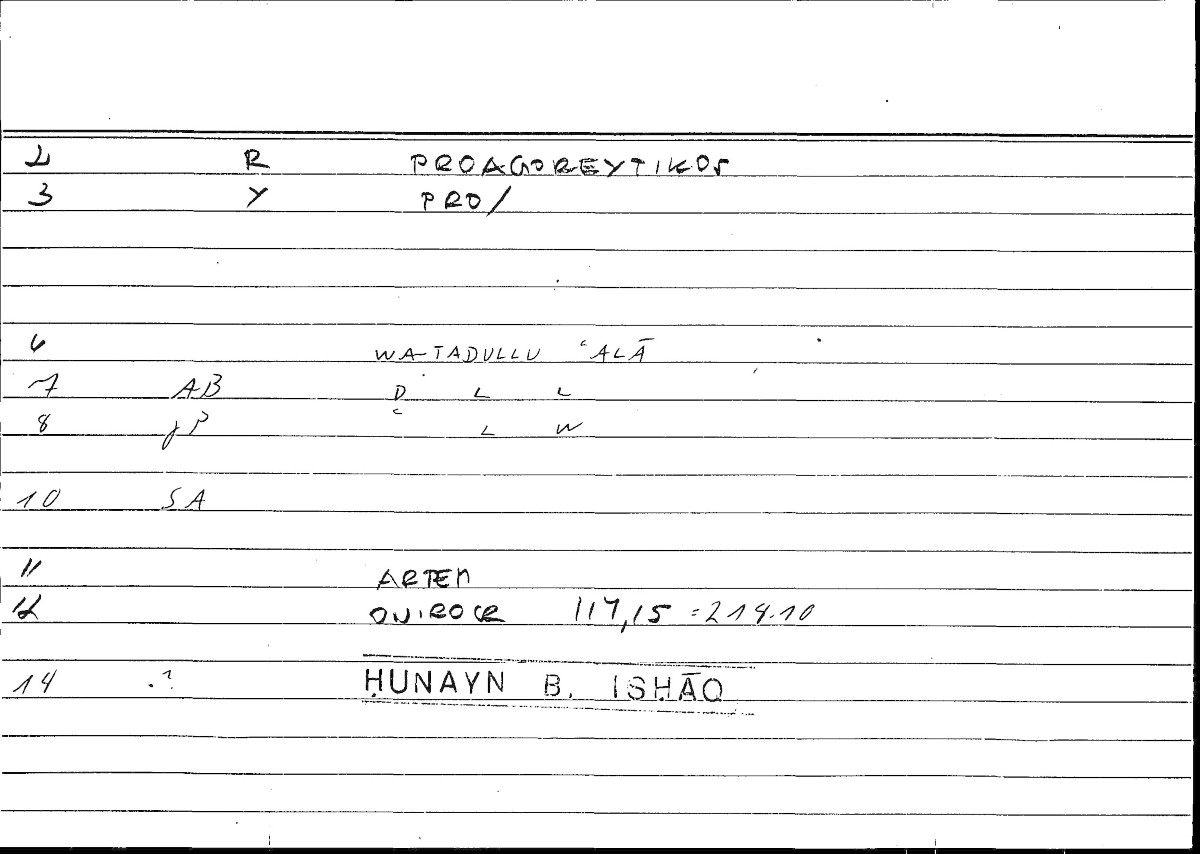 2 R PROAGOREYTIKOS
3 Y PRO/
6 WA-TADULLU ʿALĀ
7 AB D L L
8 JP ʿ L W
10 SA
11 ARTEM
12 ONIROCR 117,15 = 214.10
14 .? ḤUNAYN B. ISḤĀQ